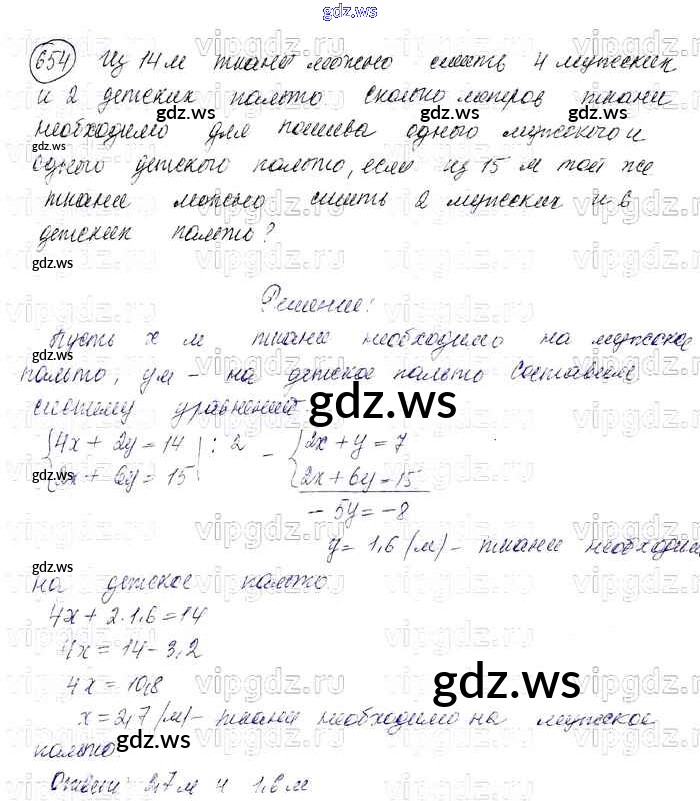 gdz.ws
654 Из 14 м ткани можно сшить 4 мужских
и 2 детских пальто. Сколько метров ткани
необходимо для пошива одного мужского и
одного детского пальто, если из 15 м той же
ткани можно сшить 2 мужских и 6
детских пальто?
Решение:
Пусть x м ткани необходимо на мужское
пальто, y м - на детское пальто Составим
систему уравнений
{4x + 2y = 14 | : 2 - {2x + y = 7
{2x + 6y = 15 | {2x + 6y = 15
- 5y = -8
y = 1,6 (м) - ткани необходимо
на детское пальто
4x + 2·1,6 = 14
4x = 14 - 3,2
4x = 10,8
x = 2,7 (м) - ткани необходимо на мужское
пальто
Ответ: 2,7 м и 1,6 м